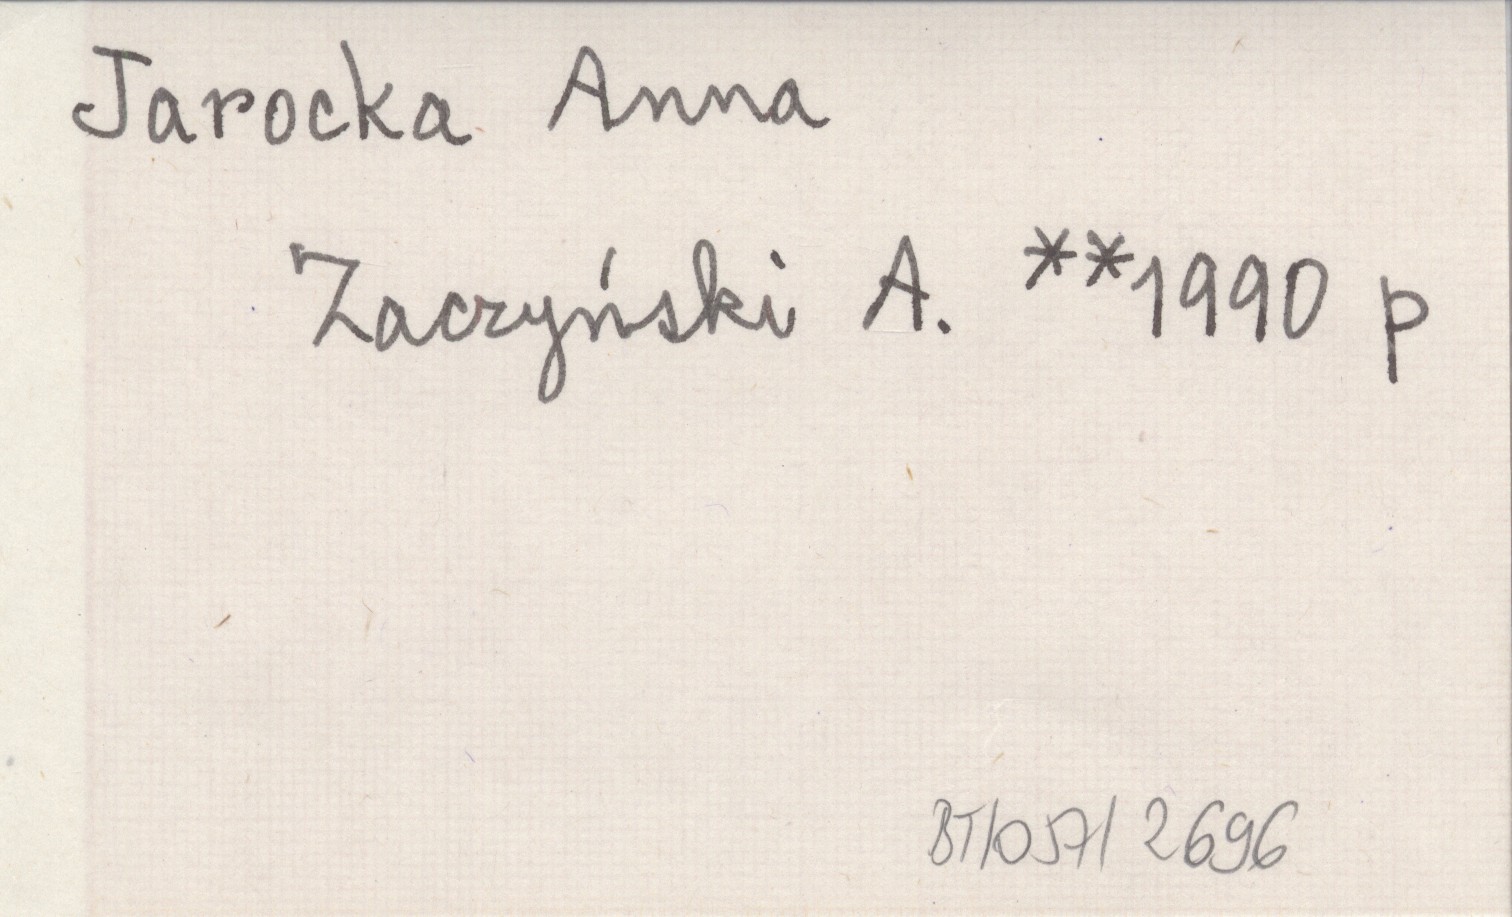 Jarocka Anna
Zaczyński A. **1990 p
BT/057/2696